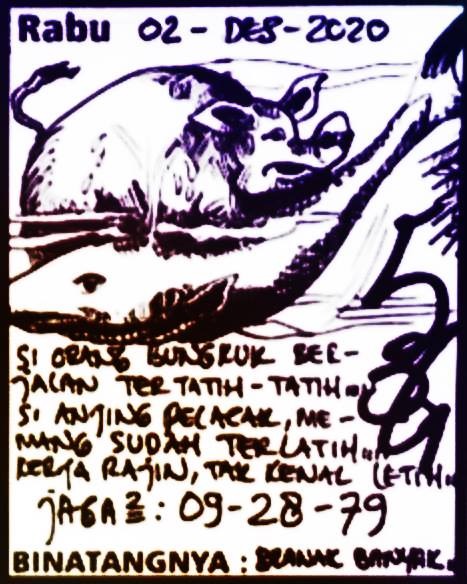 Rabu 02 - DES - 2020
SI ORANG BUNGKUK BER-
JALAN TERTATIH-TATIH...
SI ANJING PELACAK, ME-
MANG SUDAH TERLATIH...
KERJA RAJIN, TAK KENAL LETIH..
JAGA2: 09-28-79
BINATANGNYA : BERANAK BANYAK.